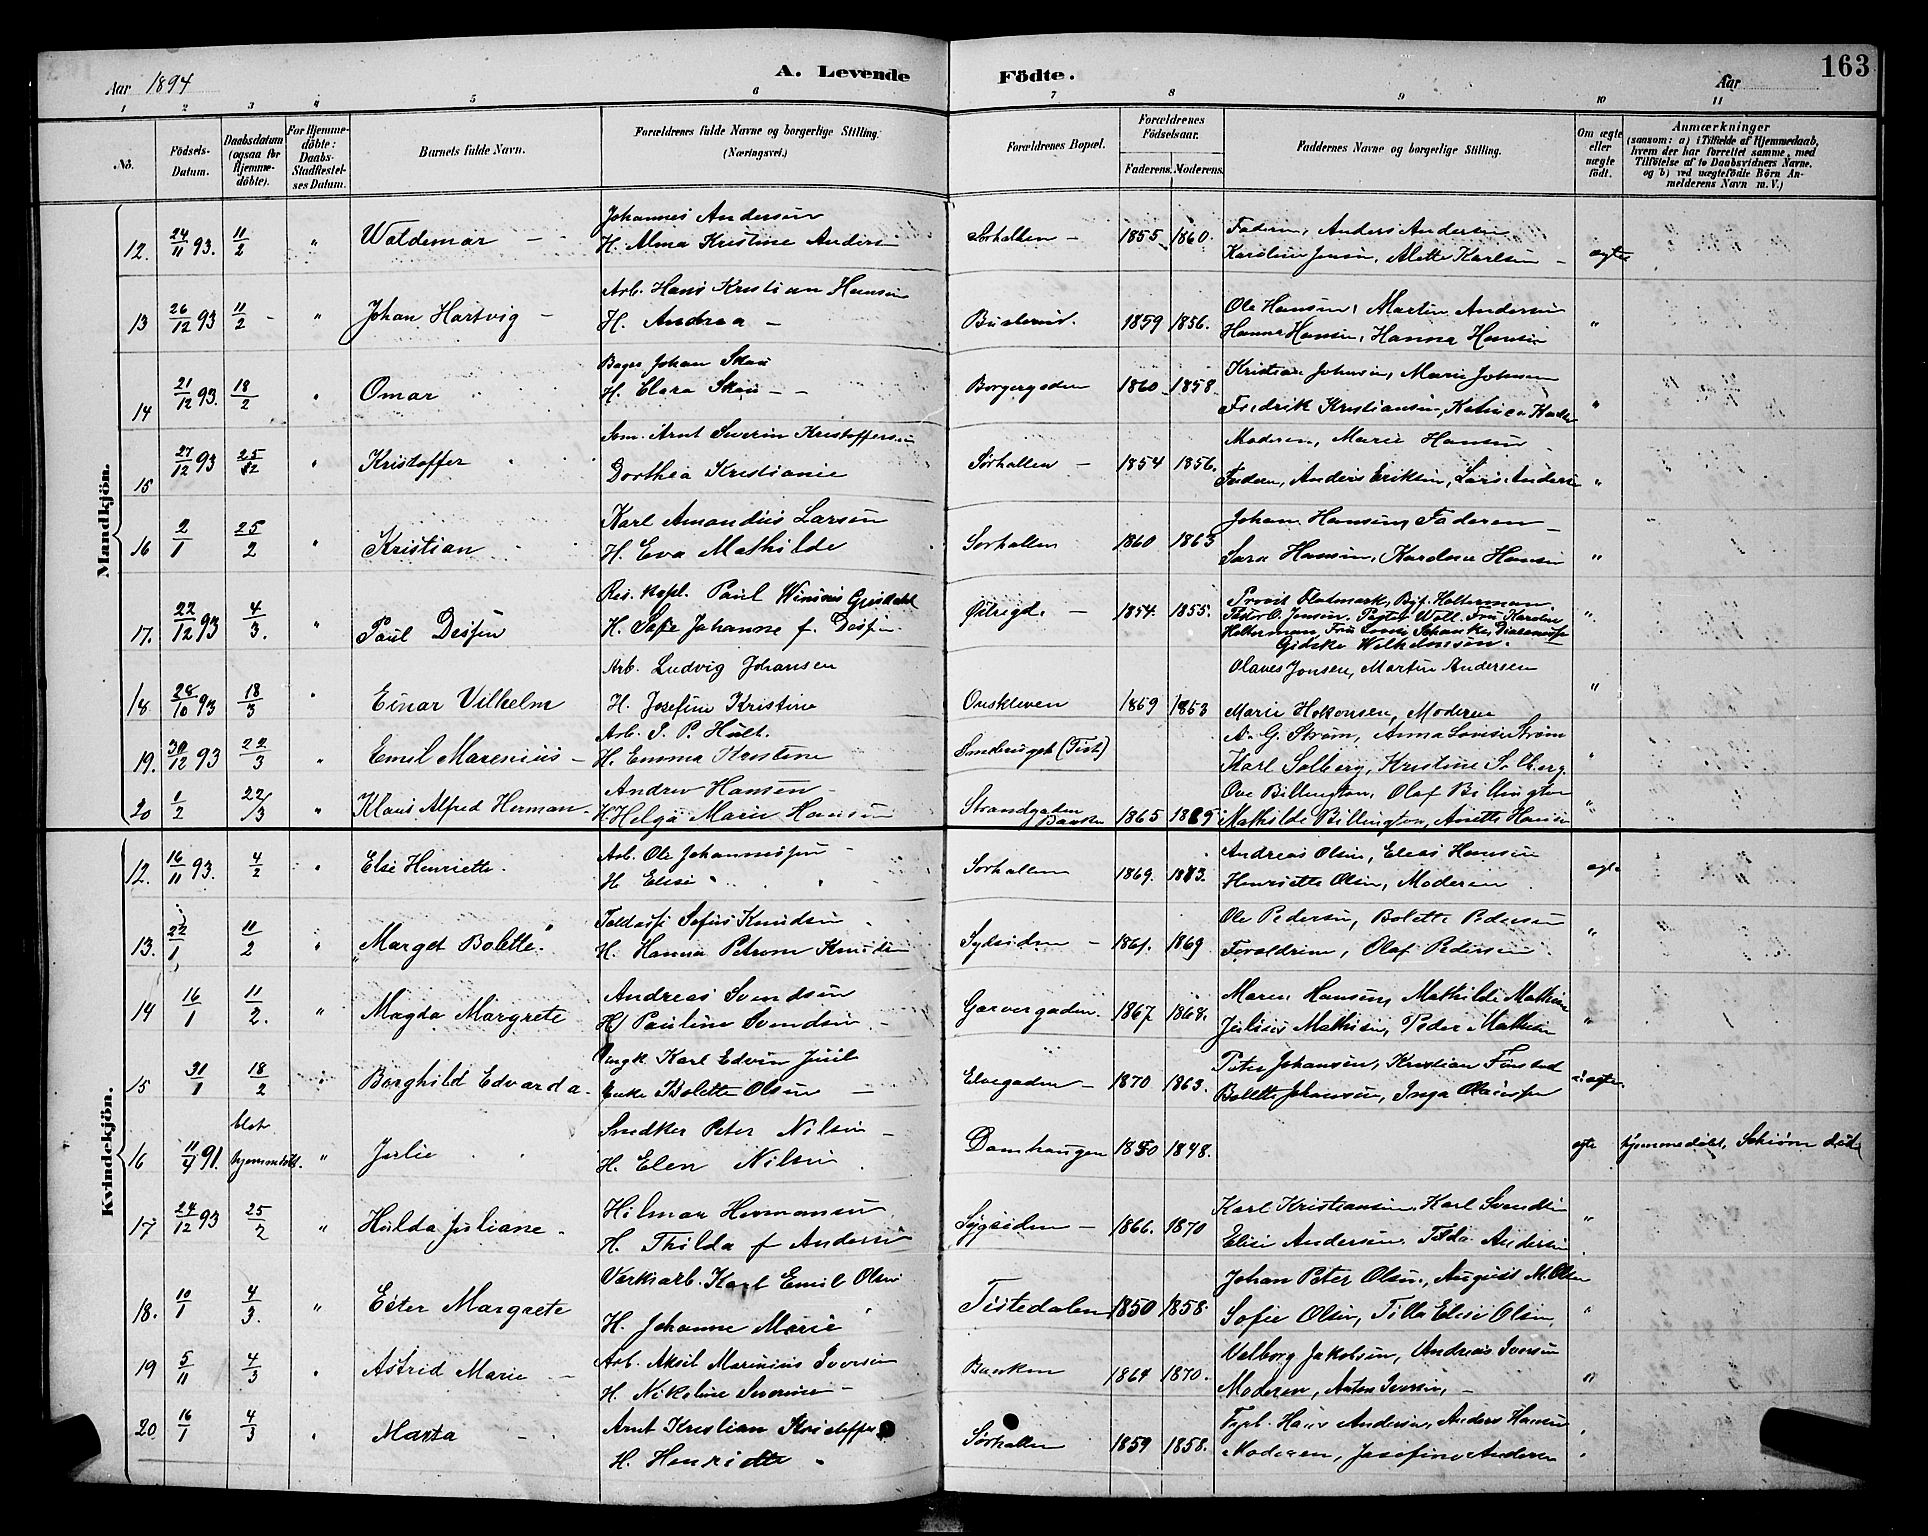 Aar 1894
A. Levende Födte.
Aar
163
1 2 3 4 5 6 7 8 9 10 11
No. Födsels-Datum. Daabsdatum (ogsaa for Hjemmedöbte). For Hjemmedöbte: Daabs-Stadfestelses Datum. Barnets fulde Navn. Forældrenes fulde Navne og borgerlige Stilling. (Næringsvei.) Forældrenes Bopæl. Forældrenes Födselsaar. Faderens. Moderens. Faddernes Navne og borgerlige Stilling. Om ægte eller uægte födt. Anmærkninger (sansom: a) i Tilfælde af Hjemmedaab, hvem der har forrettet samme, med Tilföielse af to Daabsvidners Navne, og b) ved uægtefödte Börn Anmelderens Navn m. V.)
Mandkjön.
Johannes Andersen Fadern, Anders Andersen
12. 24/11 93. 11/2 " Waldemar - H. Alma Kristine Anders Sørhallen - 1855 1860. Karoline Jensen, Alette Karlsen - ægte
Arb. Hans Kristian Hansen Ole Hansen, Martin Andersen
13 26/12 93 11/2 - " Johan Hartvig - H. Andrea - 1859 1856. Hanna Hansen, Hanna Hansen "
Bager Johan Skau Kristian Johnsen, Marie Johnsen
14 21/12 93. 18/2 " Omar H. Clara Skau - - Borgergaden 1860 1858. Fredrik Kristiansen, "
Søm. Arnt Severin Kristoffersen Moderen, Marie Hansen
15 27/12 93 25/2 " Kristoffer Dorthea Kristianie Sørhallen - 1854 1856. Faderen, Anders Eriksen, Lars Anderse "
Karl Amandus Larsen Johan Hansen, Faderen -
16 2/1 25/2 " Kristian H. Eva Mathilde Sørhallen 1860 1863 Sara Hansen, Hansen "
Res. Kapl. Paul Grisdahl Provst Flodmark, Byf. Holtermann.
17. 22/12 93 4/3. " Paul Dessen H. Sofie Johanne f. Dessen - 1854. 1855. Pastor O. Jensen, Pastor Woll, Fru Karoline "
Holterman, Fru
Gidske Wilhelmsen.
Arb. Ludvig Johansen Olaves Jonsen, Martin Andersen
18 28/10 93 18/3 " Einar Vilhelm H. Josefine Kristine Ouskleven 1869 1853 Marie Hokonsen, Moderen "
Arb. S. P. Hult. A. G. Strøm, Anna Lovise Strøm
19. 30/12 93 22/3 " Emil Marenius - H. Emma Kristine (Tist) Karl Solberg, Kristine Solberg. "
Andrew Hansen - Ove Billington, Olaf Billington
20 1/2 22/3 " Klaus Alfred Herman - H Helga Marie Hansen Strandgaden Banken 1865 1869 Mathilde Billington, Anette Hansen "
Kvindekjön.
Arb. Ole Johannessen - Andreas Olsen, Eleas Hansen
12. 16/11 93. 4/2 " Else Henriette. H Elise " Sørhallen 1869. 1873. Henriette Olsen, Moderen ægte
Toldass. Sofus Knudsen Ole Pedersen, Bolette Pedersen
13. 22/1 11/2 " "Marget Bolette." H. Hanna Petrea Knudsen Sydsiden - 1861. 1869. Forældrene, Olaf Pedersen. "
Andreas Svendsen Maren Hansen, Mathilde Mathisen
14 16/1 11/2. " Magda Margrete H Pauline Svendsen - Garvergaden. 1867 1868. Julius Mathisen, Peder Mathisen "
Ungk. Karl Edvin Juul Peter Johansen, Kristian Finstad
15 31/1 18/2 " Borghild Edvarda. Enke Bolette Olsen - Elvegaden - 1870 1863. Bolette Johansen, Inga Olaussen uægte
blot Snedker Peter Nilsen -
16 11/4 91. hjemmedøbt. " Julie H. Elen Nilsen. Damhaugen 1850 1848. ægte hjemmedøbt, Schiørn død
Hilmar Hermansen Karl Kristiansen, Karl Svendsen
17 24/12 93 25/2 " Hulda Juliane. H. Thilda f Andersen Sydsiden - 1866. 1870 Elise Andersen, Tilda Andersen. "
Værksarb. Karl Emil Olsen Johan Peter Olsen, August M. Olsen
18. 10/1 4/3. " Ester Margrete H. Johanne Marie Tistedalen 1850 1858. Sofie Olsen, Tilla Elise Olsen, "
Arb. Aksel Marinius Iversen Valborg Jakobsen, Andreas Iversen
19 5/11 4/3 " Astrid Marie - H. Nikoline Severine - Banken 1864 1870. Moderen, Anton Iversen, - "
Arnt Kristian Kristoffer Fyrb. Hans Andersen, Anders Hansen
20 16/1 4/3 " Marta - H. Henriette " Sørhallen 1859 1858. Moderen, Josefine Andersen "